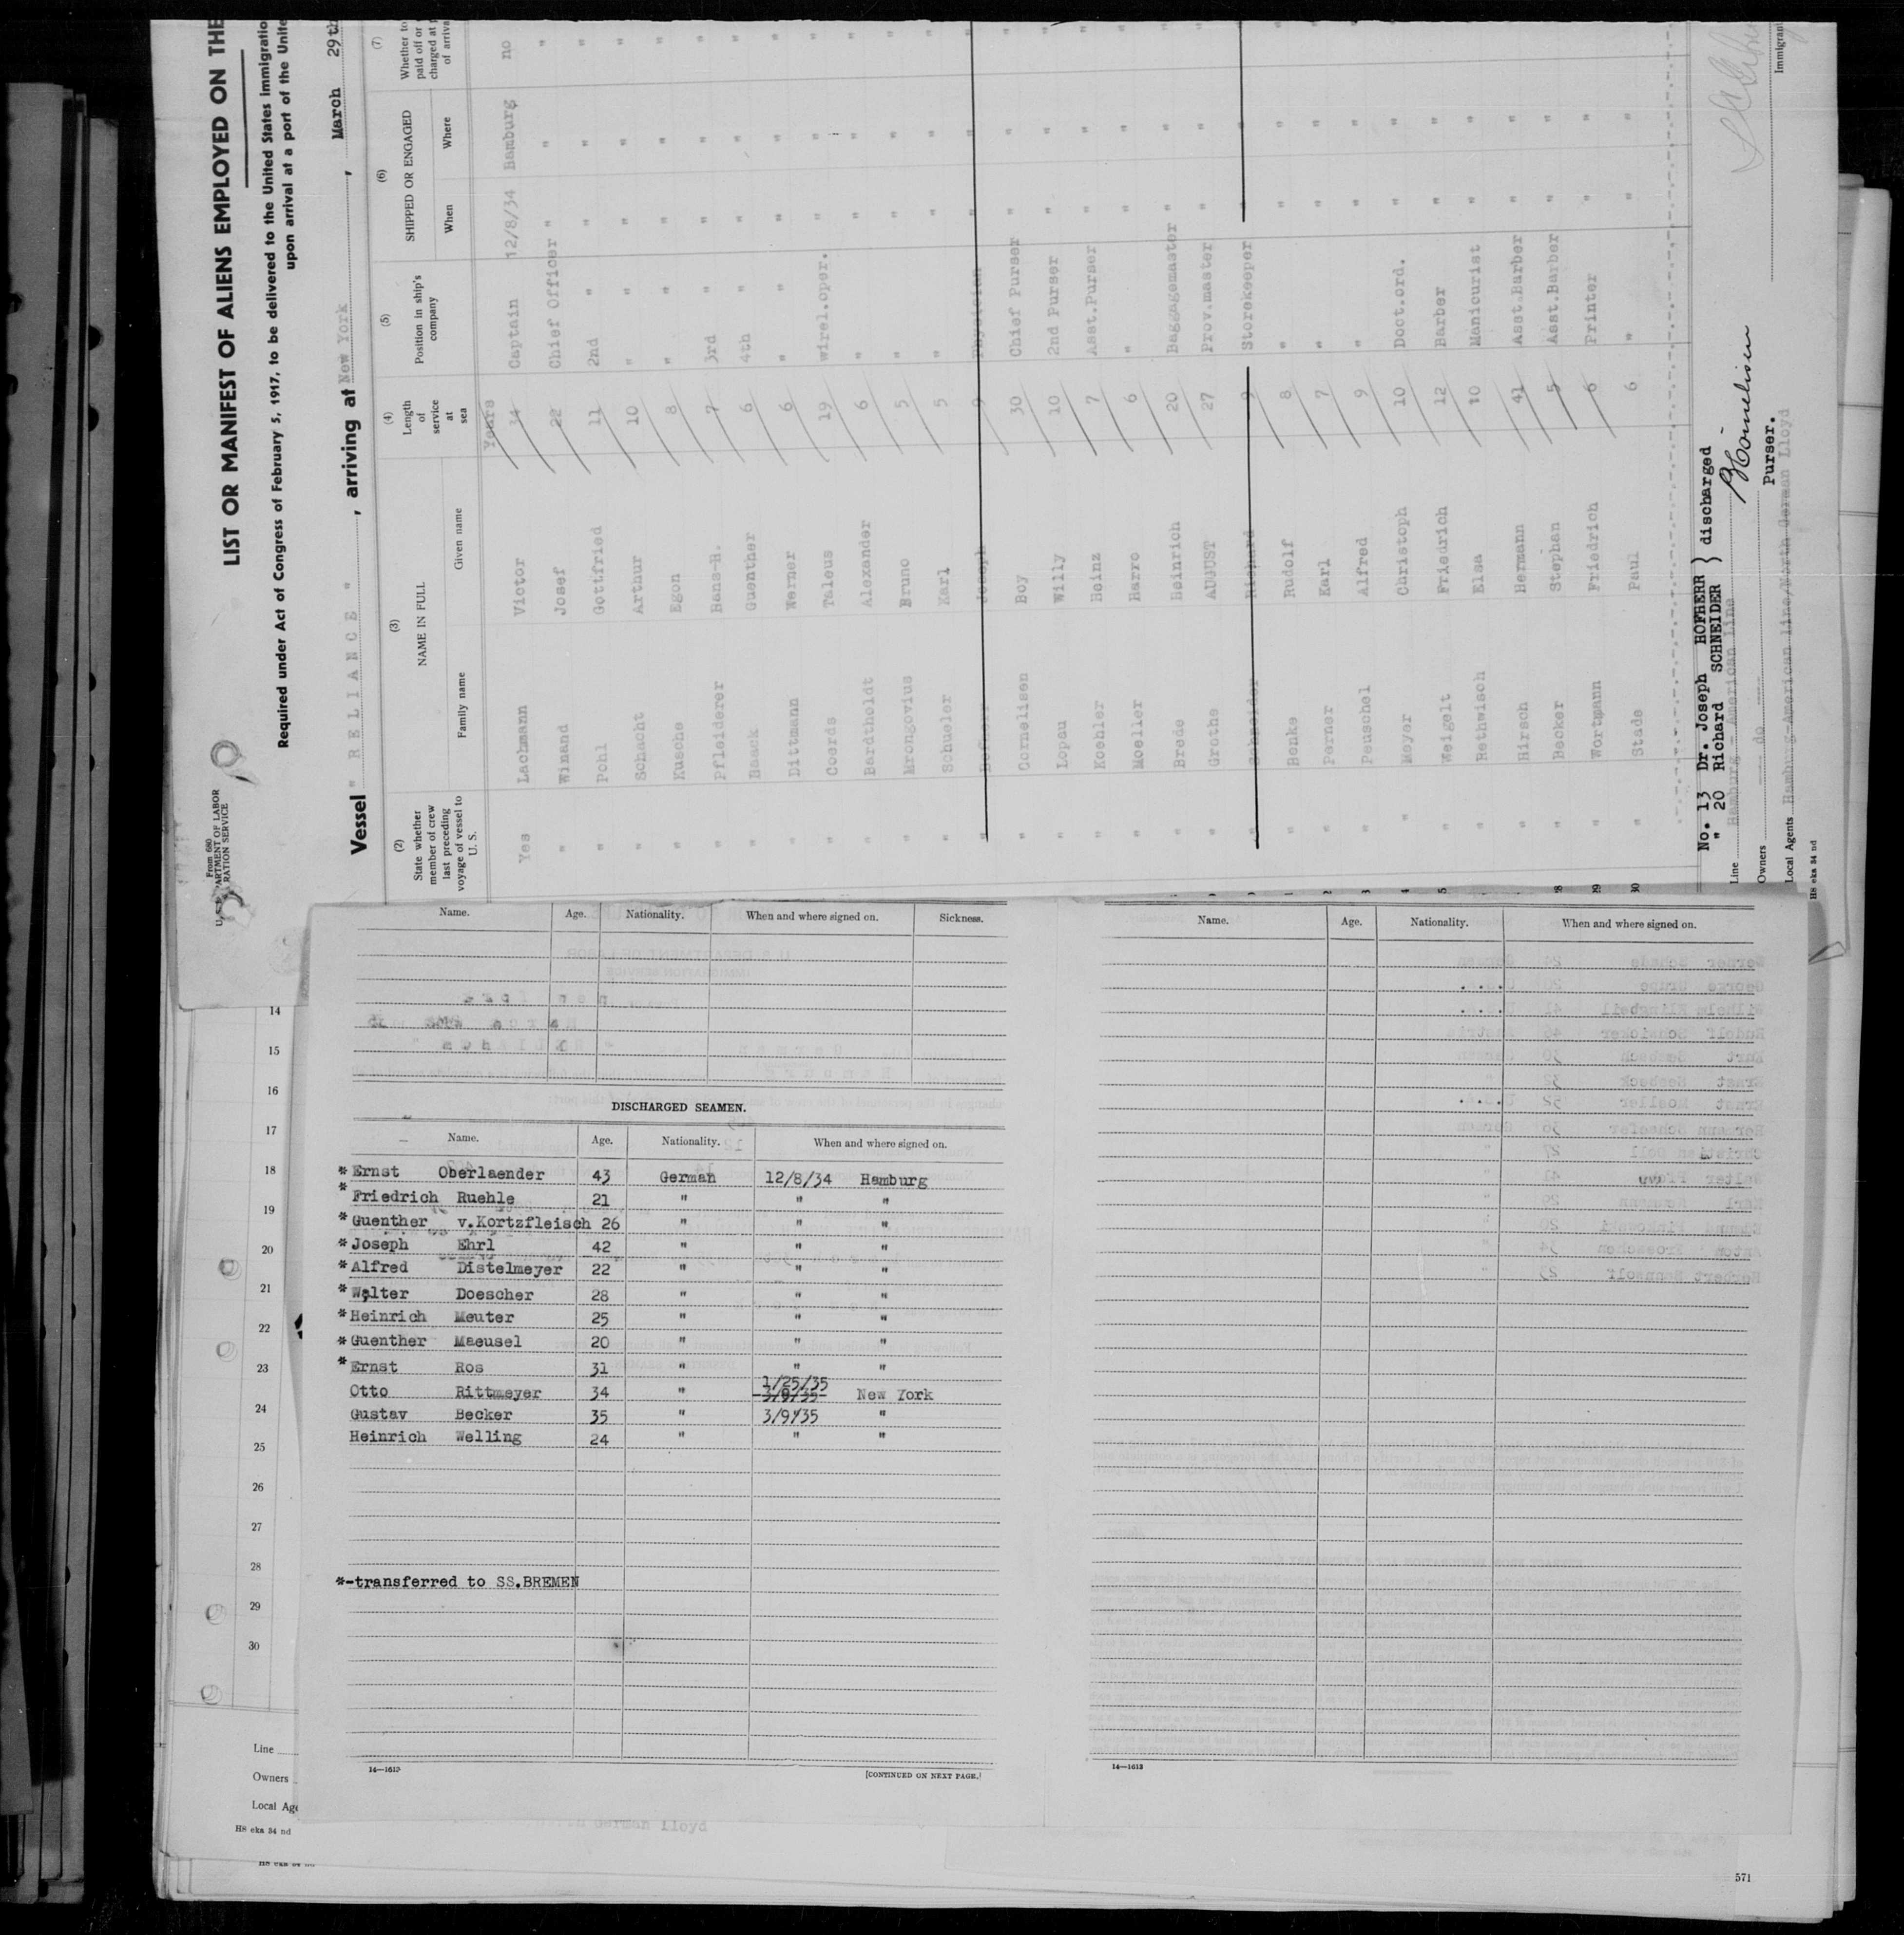 From 680
LIST OR MANIFEST OF ALIENS EMPLOYED ON THE
Required under Act of Congress of February 5, 1917, to be delivered to the United States
upon arrival at a port of the
Vessel " R E L I A N C E " , arriving at New York , March 29th
(2) (3) (4) (5) (6) (7)
State whether member of crew last preceding voyage of vessel to U. S.
NAME IN FULL
Family name Given name
Length of service at sea
Position in ship's company
SHIPPED OR ENGAGED
When Where
Years
Yes Lachmann Victor 34 Captain 12/8/34 Hamburg no
" Winand Josef 22 Chief Officer " " "
" Pohl Gottfried 11 2nd " " " "
" Schacht Arthur 10 " " " "
" Kusche Egon 8 " " " "
" Pfleiderer Hans-H. 7 3rd " " " "
" Baack Guenther 6 4th " " " "
" Dittmann Werner 6 " " " "
" Coerds Taleus 19 wirel.oper. " " "
" Bardtholdt Alexander 6 " " " "
" Mrongovius Bruno 5 " " " "
" Schueler Karl 5 " " " "
" Joseph 9 Physician " " "
" Cornelisen Boy 30 Chief Purser " " "
" Lopau Willy 10 2nd Purser " " "
" Koehler Heinz 7 Asst.Purser " " "
" Moeller Harro 6 " " " "
" Brede Heinrich 20 Baggagemaster " " "
" Grothe AUGUST 27 Prov.master " " "
" Schneider Richard 9 Storekeeper " " "
" Benke Rudolf 8 " " " "
" Perner Karl 7 " " " "
" Penschel Alfred 9 " " " "
" Meyer Christoph 10 Doct.ord. " " "
" Weigelt Friedrich 12 Barber " " "
" Rethwisch Elsa 10 Manicurist " " "
" Hirsch Hermann 41 Asst.Barber " " "
" Becker Stephan 5 Asst.Barber " " "
" Wortmann Friedrich 6 Printer " " "
" Stade Paul 6 " " " "
No. 13 Dr. Joseph HOFHERR } discharged
" 20 Richard SCHNEIDER
Line Hamburg - American Line
Owners do
Purser.
Local Agents Hamburg-American Line/North German Lloyd
HS eka 34 nd
Name. Age. Nationality. When and where signed on. Sickness.
DISCHARGED SEAMEN.
Name. Age. Nationality. When and where signed on.
*Ernst Oberlaender 43 German 12/8/34 Hamburg
*Friedrich Ruehle 21 " " "
*Guenther v.Kortzfleisch 26 " " "
*Joseph Ehrl 42 " " "
*Alfred Distelmeyer 22 " " "
*Walter Doescher 28 " " "
*Heinrich Meuter 25 " " "
*Guenther Maeusel 20 " " "
*Ernst Ros 31 " " "
1/25/35
Otto Rittmeyer 34 " 3/9/35 New York
Gustav Becker 35 " 3/9/35 "
Heinrich Welling 24 " " "
*-transferred to SS.BREMEN
14—1613
[CONTINUED ON NEXT PAGE.]
Name. Age. Nationality. When and where signed on.
14—1613
14
15
16
17
18
19
20
21
22
23
24
25
26
27
28
29
30
Line
Owners
Local
HS eka 34 nd
German Lloyd
571